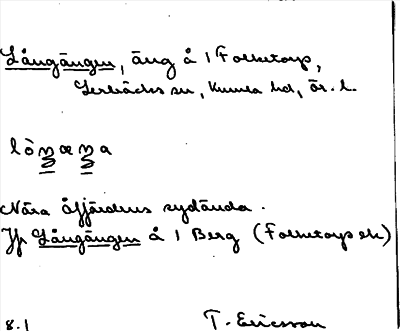 Långängen, äng å 1 Folketorp,
Lerbäcks sn, Kumla hd, Ör. l.
lòŋæŋa
Nära åfjärdens sydända.
Jfr Långängen å 1 Berg (Folketorp ek)
8.1 T. Ericsson